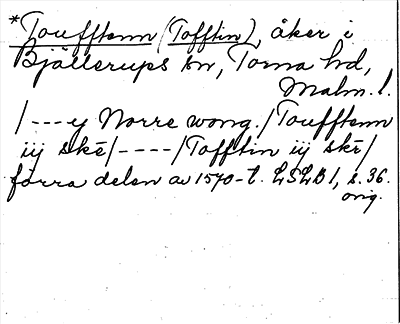 *Toufftenn (Tofftin), åker i
Bjällerups sn, Torna hd,
Malm. l.
/---y Norre wong. /Toufftenn
iij skē/----/Tofftin iij skē/
förra delen av 1570-t. LSLB 1, s. 36.
orig.